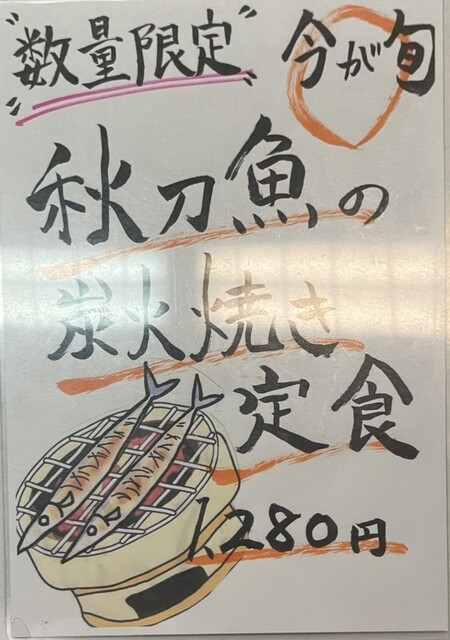 "数量限定" 今が旬
秋刀魚の
炭火焼き
定食
1,280円